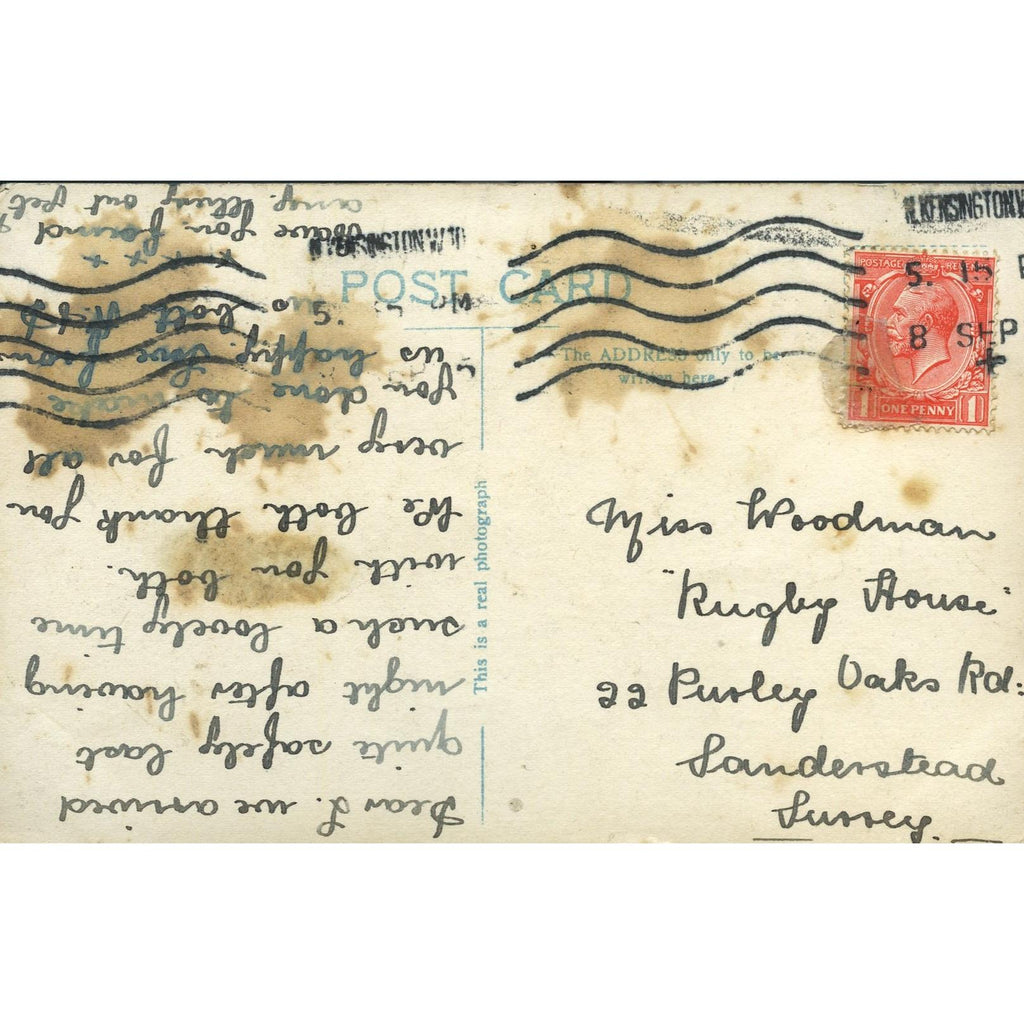 Dear L. we arrived
quite safely last
night after having
such a lovely time
with you both.
We both thank you
very much for all
you done to make
us happy. Love from
us both
x x x x
Have you found
any thing out yet
POST CARD
The ADDRESS only to be
written here
This is a real photograph
N.KENSINGTON.W.10
N.KENSINGTON.W
5. 15 P
8 SEP
POSTAGE REVENUE
1 ONE PENNY 1
Miss Woodman
"Rugby House"
22 Purley Oaks Rd:
Sanderstead
Surrey.